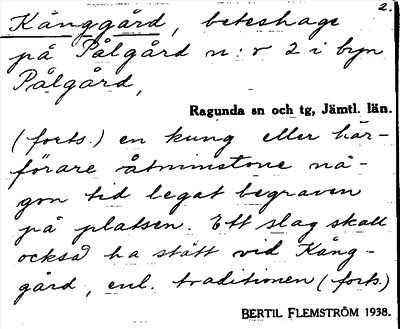 2.
Kånggård, beteshage
på Pålgård n:r 2 i byn
Pålgård,
Ragunda sn och tg, Jämtl. län.
(forts.) en kung eller här-
förare åtminstone nå-
gon tid legat begraven
på platsen. Ett slag skall
också ha stått vid Kång-
gård, enl. traditionen (forts.)
BERTIL FLEMSTRÖM 1938.